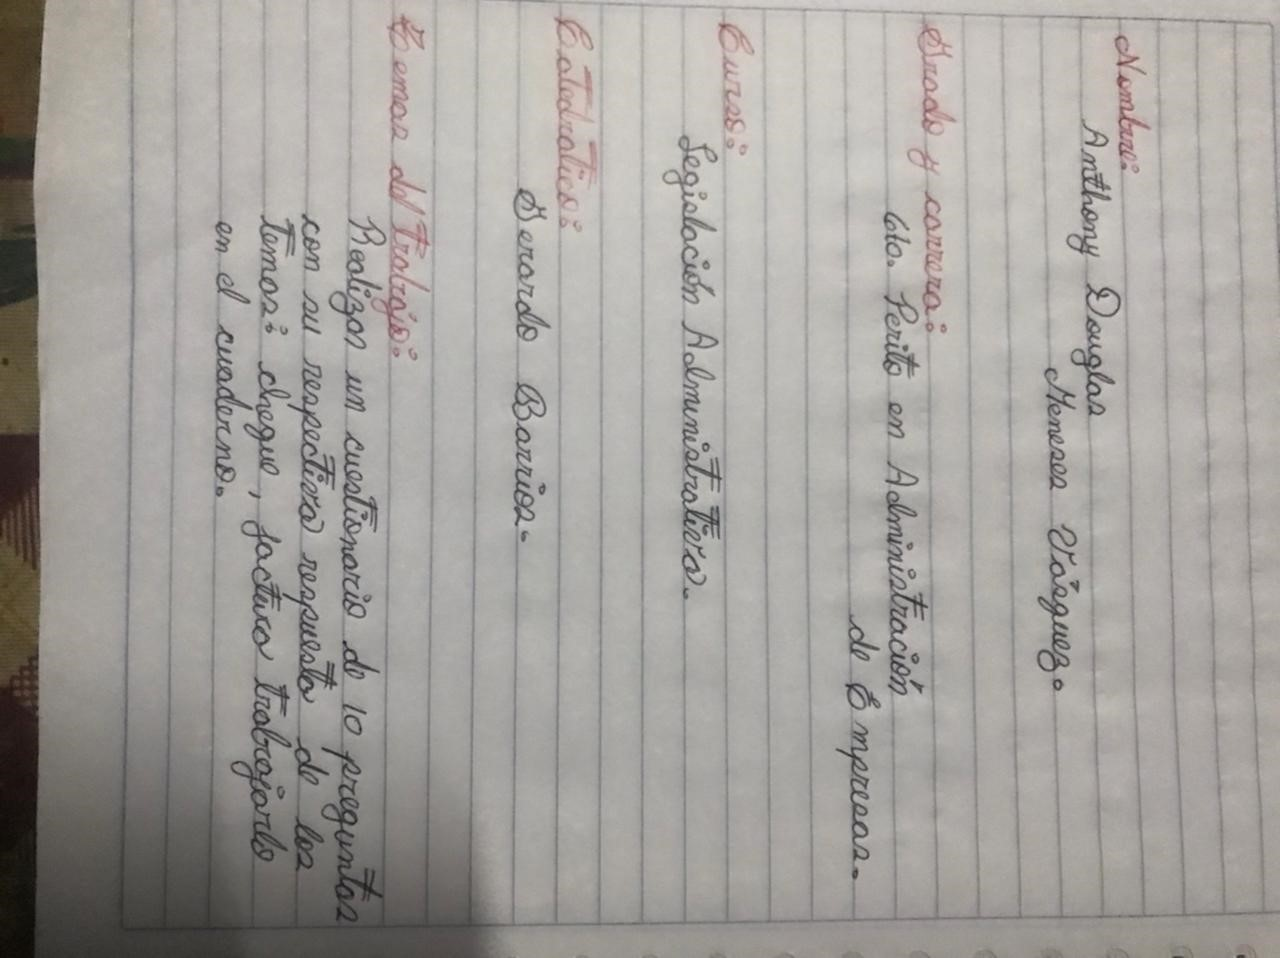 Nombre:
Anthony Douglas
Meneses Vásquez.
Grado y carrera:
6to. Perito en Administración
de Empresas.
Curso:
Legislación Administrativa.
Catedratico:
Gerardo Barrios.
Temas del trabajo:
Realizar un cuestionario de 10 preguntas
con su respectiva respuesta de los
temas: cheque, factura trabajarlo
en el cuaderno.